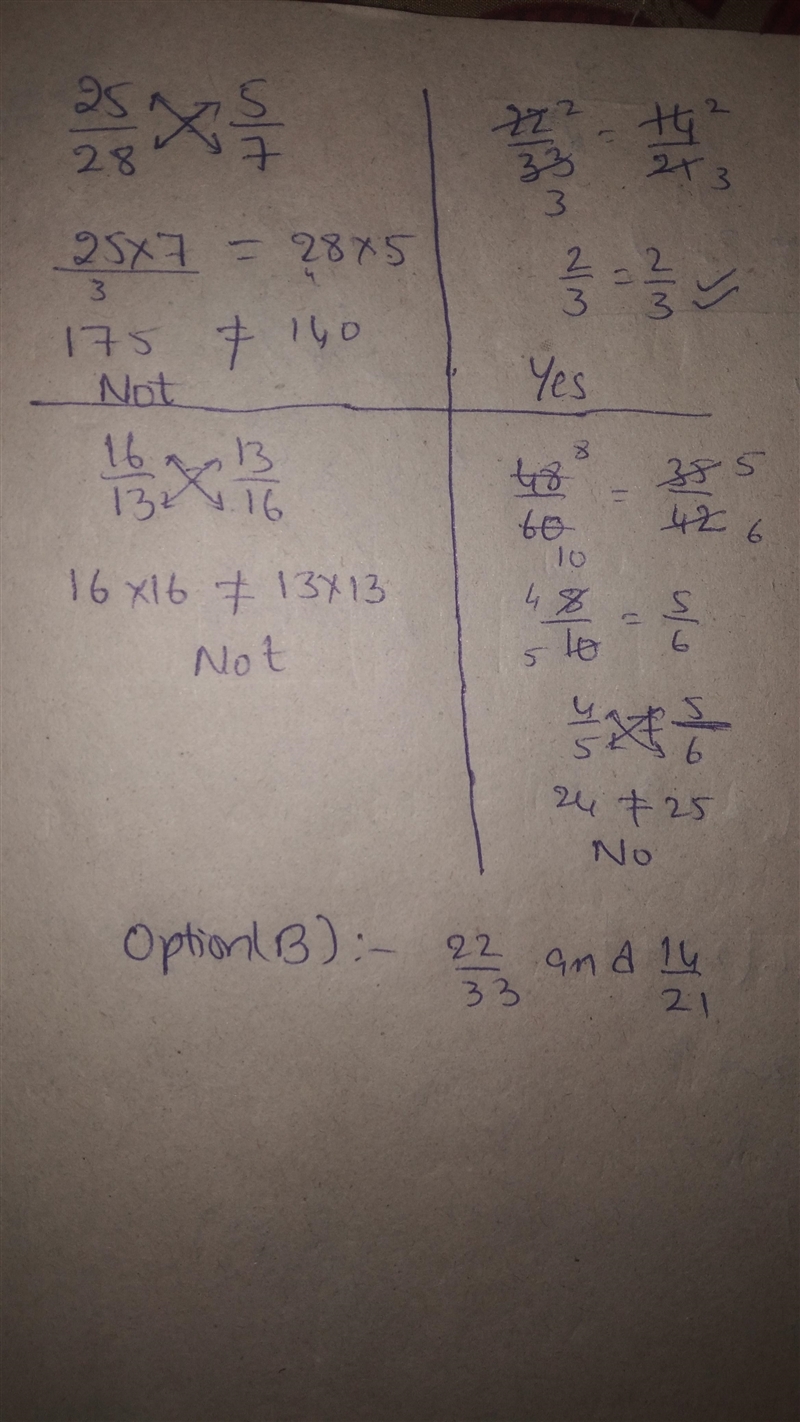 25/28 5/7
25×7 = 28×5
3
175 ≠ 140
Not
22/33 2 3 = 14/21 2 3
2/3 = 2/3
Yes
16/13 13/16
16×16 ≠ 13×13
Not
48/60 8 10 = 38/42 5 6
4 8/10 5 = 5/6
4/5 ≠ 5/6
24 ≠ 25
No
Option(B):- 22/33 and 14/21